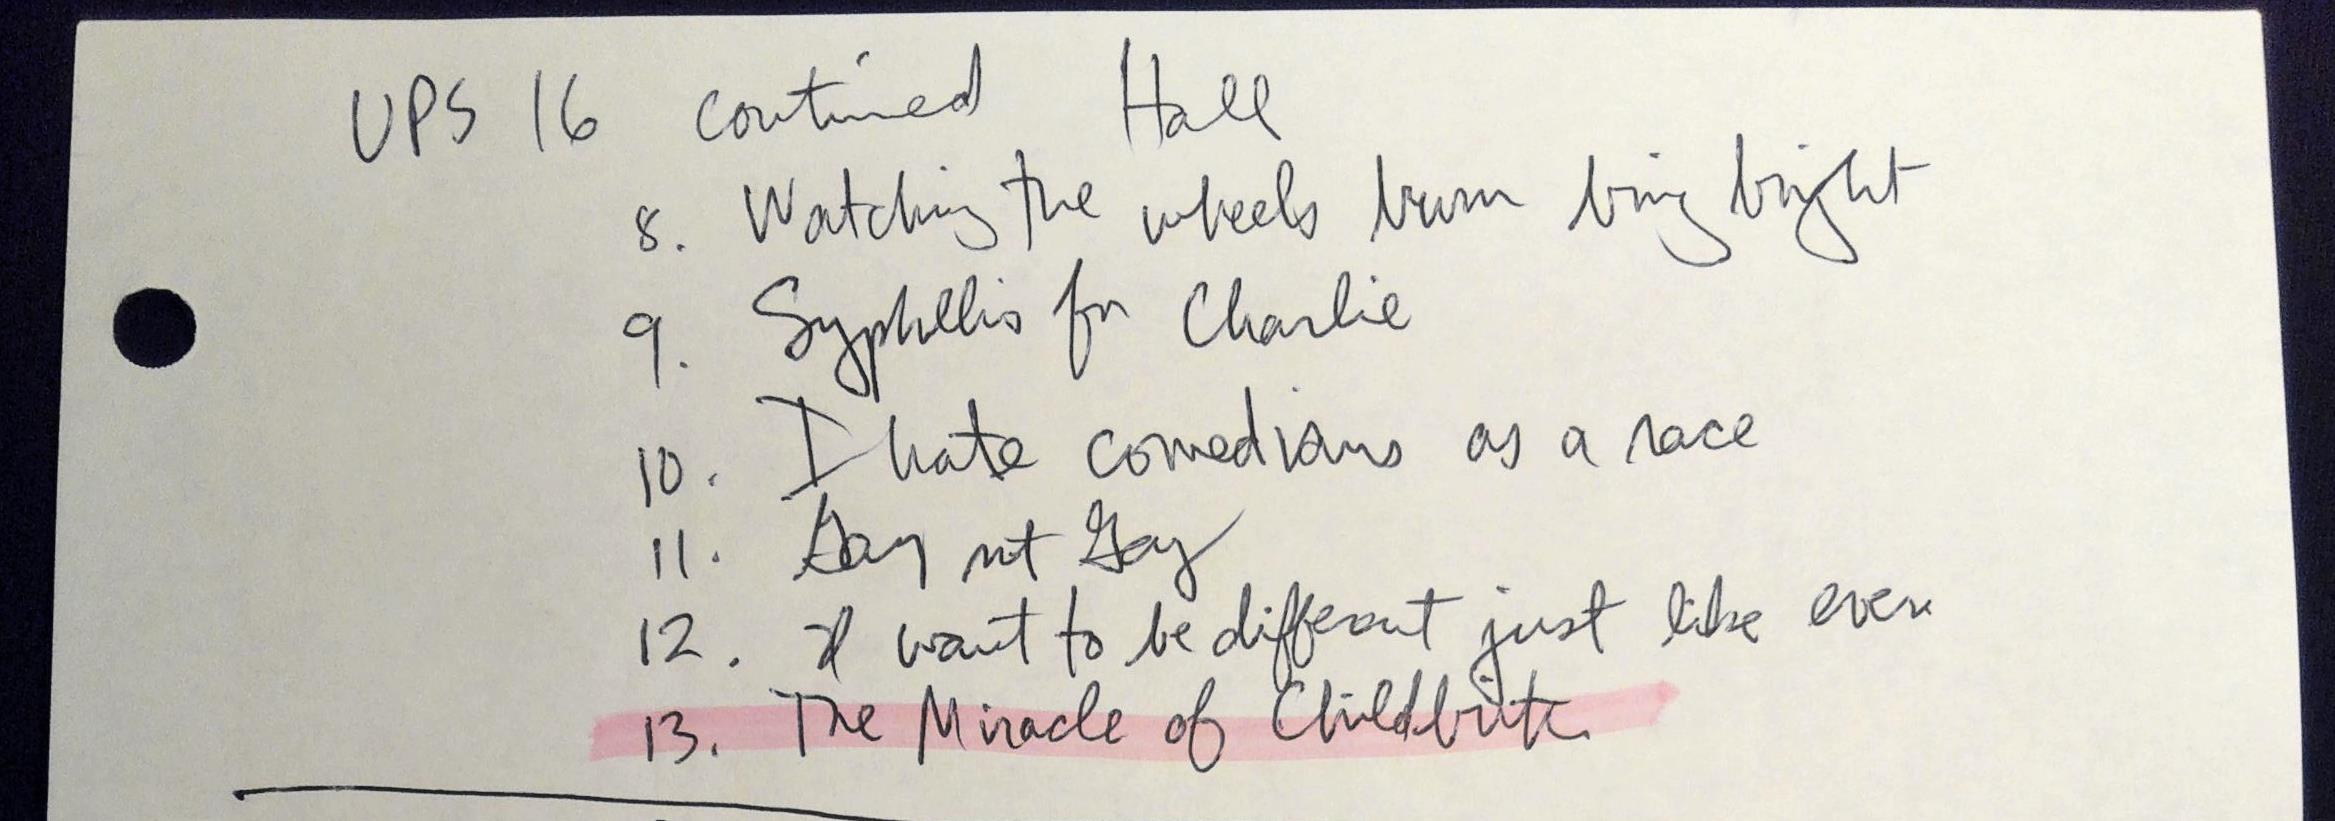 UPS 16 continued Hall
8. Watching the wheels burn bing bright
9. Syphillis for Charlie
10. I hate comedians as a race
11. Gay not Gay
12. I want to be different just like ever
13. The Miracle of Childbirth